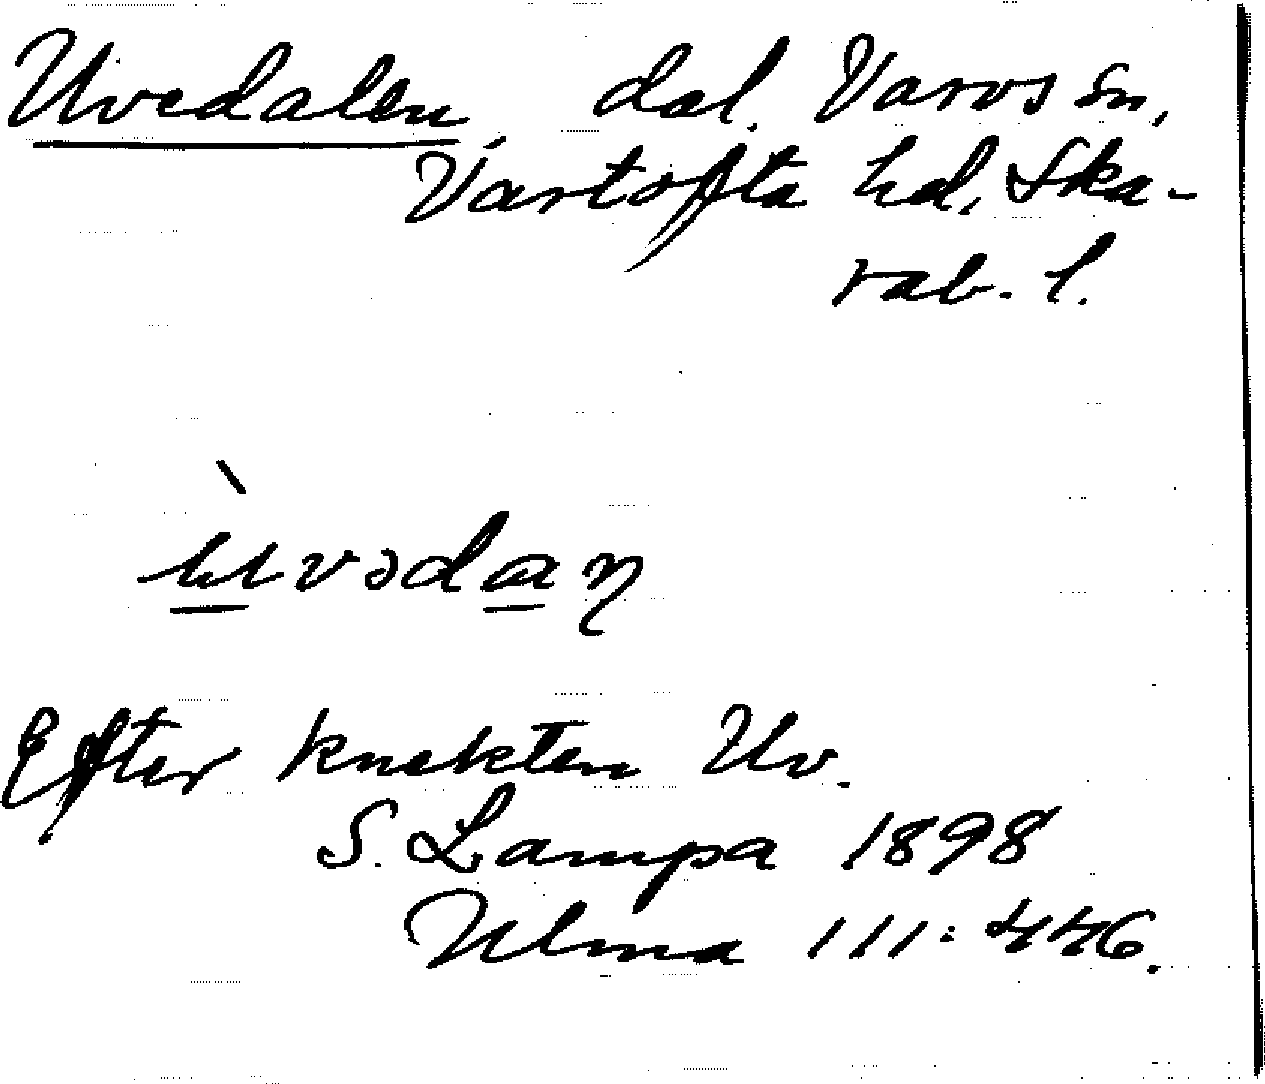 Uvedalen, dal. Varvs sn,
Vartofta hd, Ska-
rab. l.
Efter knekten Uv.
S. Lampa 1898
Ulma 111:446.